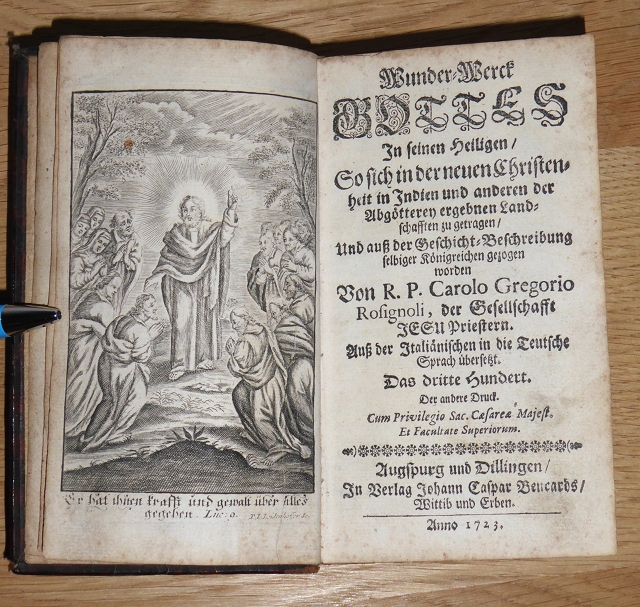 Er hat ihnen krafft und gewalt über alles
gegeben. Luc: 9.
Wunder-Werck
GOTTES
In seinen Heiligen/
So sich in der neuen Christen-
heit in Indien und anderen der
Abgötterey ergebnen Land-
schafften zu getragen/
Und auß der Geschicht-Beschreibung
selbiger Königreichen gezogen
worden
Von R. P. Carolo Gregorio
Rosignoli, der Gesellschafft
JESU Priestern.
Auß der Italiänischen in die Teutsche
Sprach übersetzt.
Das dritte Hundert.
Der andere Druck.
Cum Privilegio Sac. Cæsareæ Majest.
Et Facultate Superiorum.
Augspurg und Dillingen/
In Verlag Johann Caspar Bencards/
Wittib und Erben.
Anno 1723.